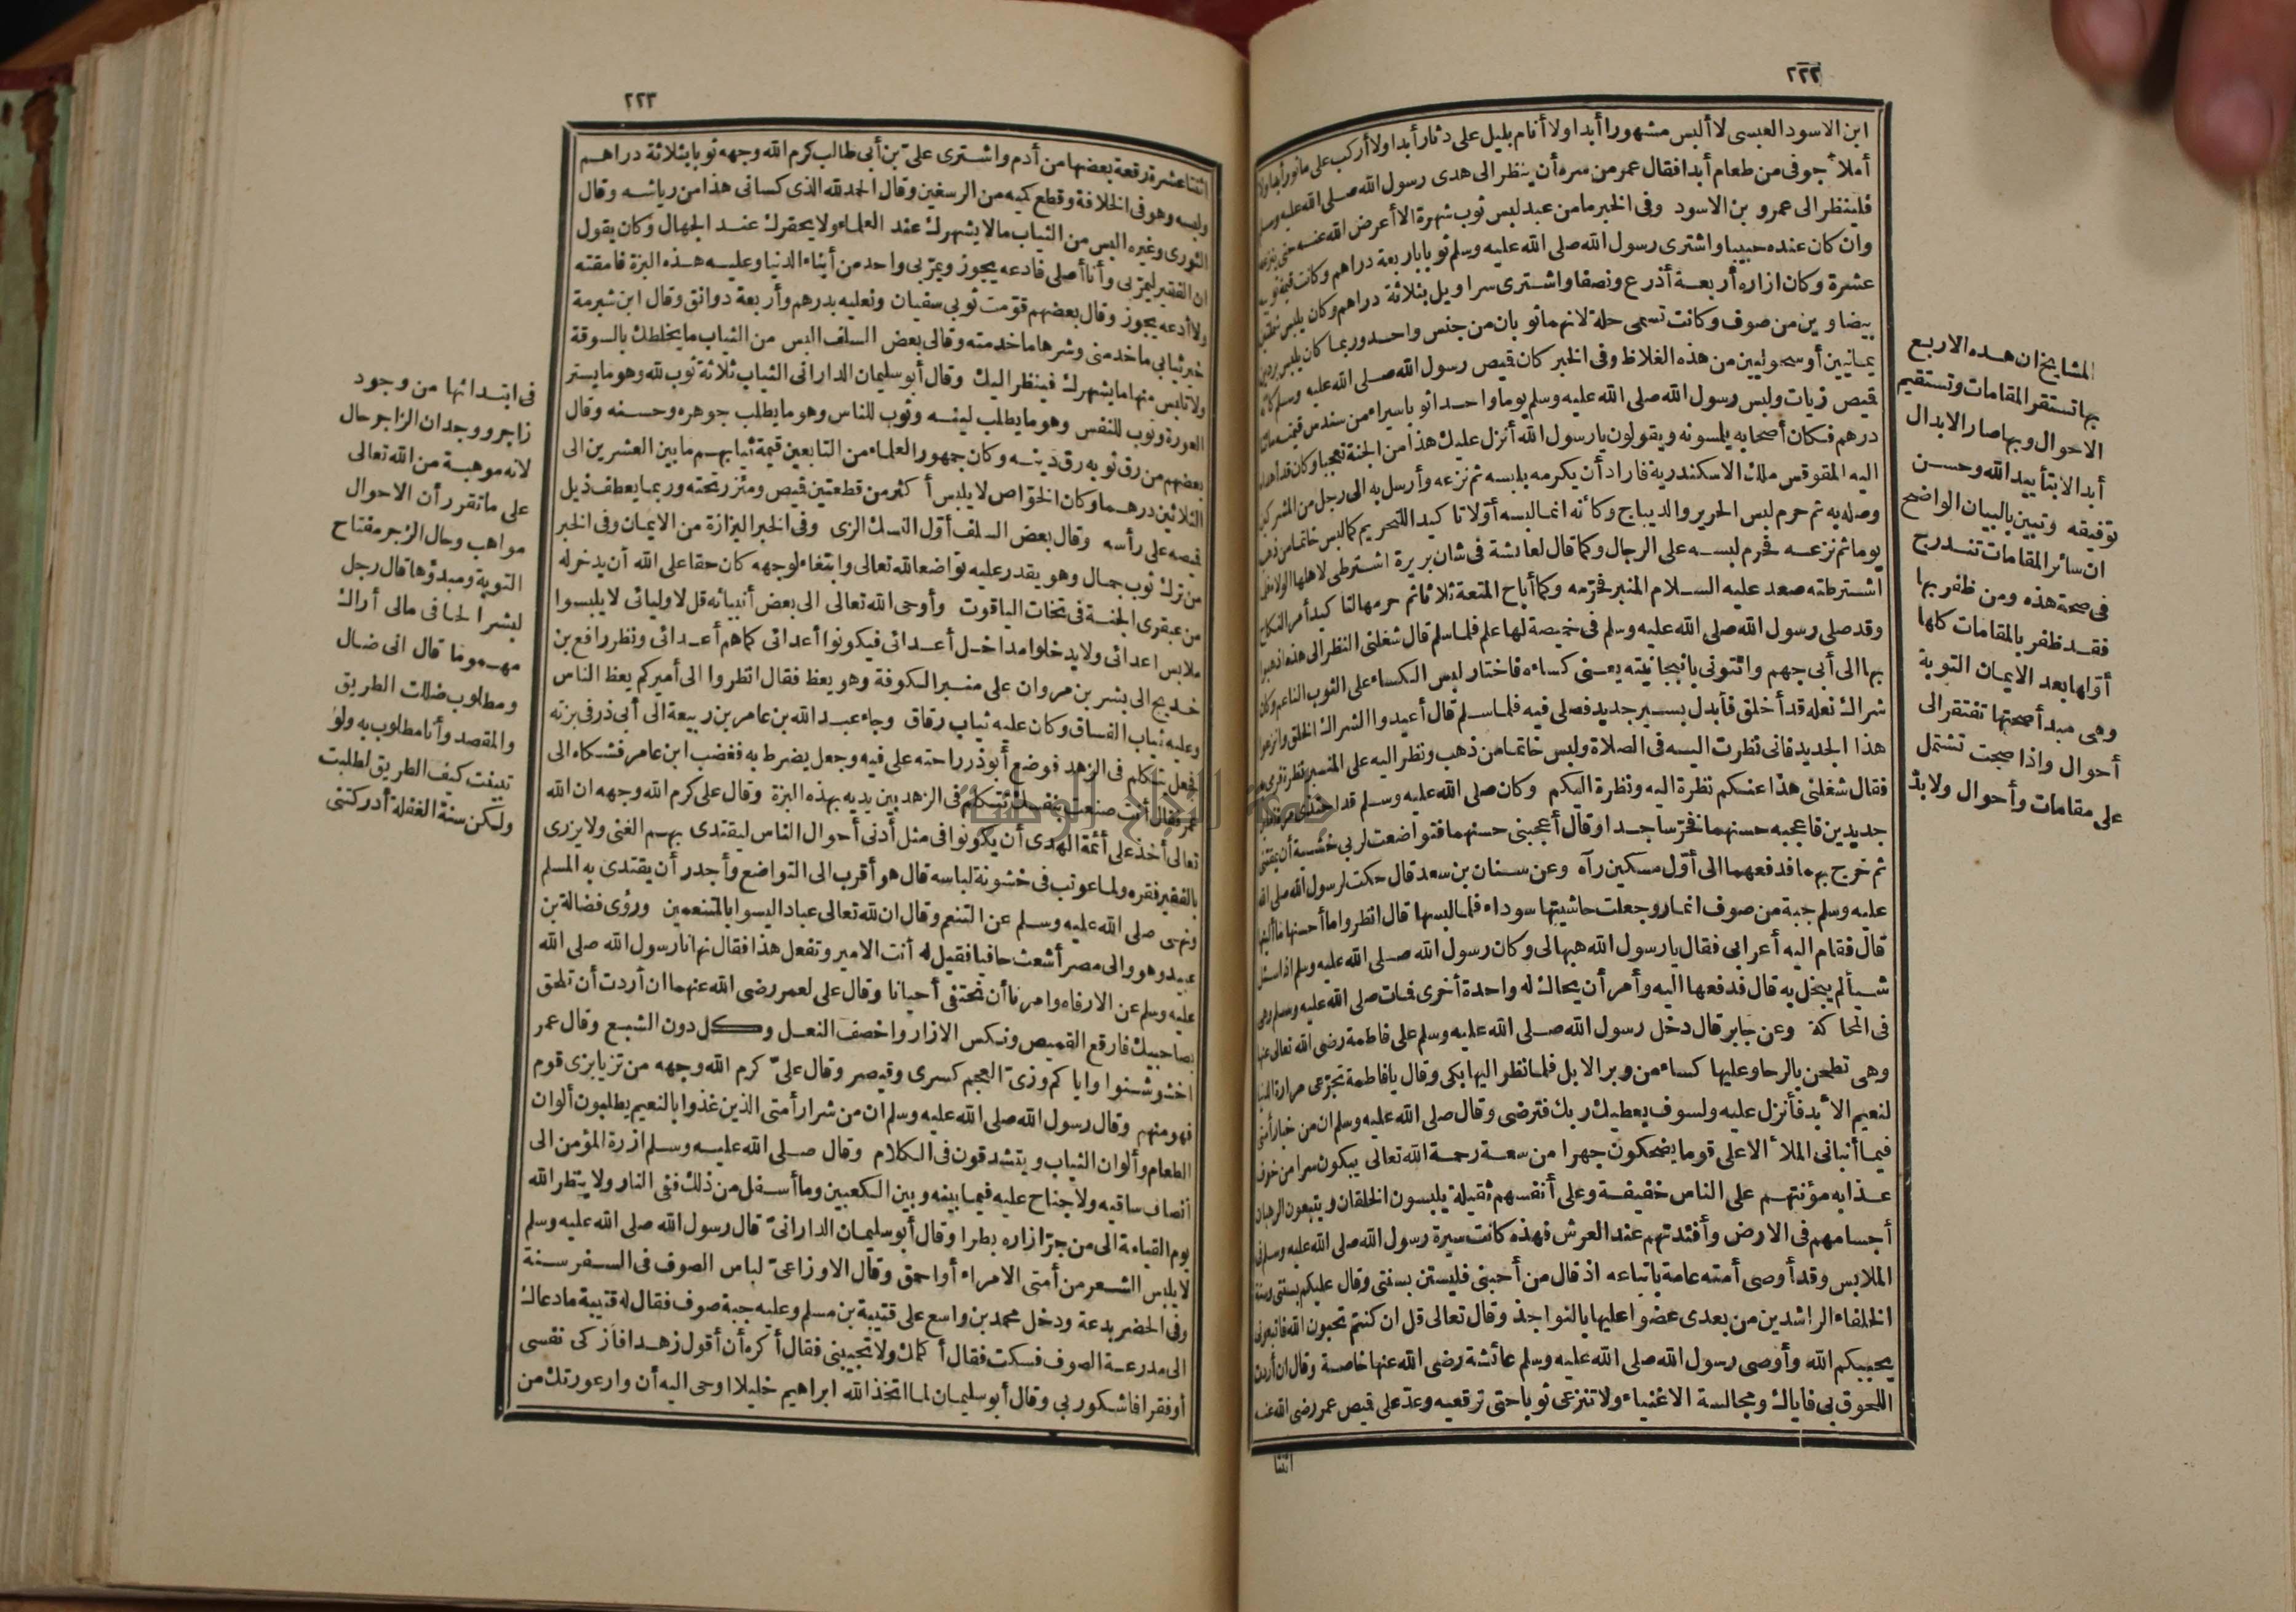 ٢٢٢
ابن الاسود العبسى لا ألبس مشهورا أبدا ولا أنام بليل على دثار أبدا ولا أركب على مأثور أبدا ولا
أملأ جوفى من طعام أبدا فقال عمر من سره أن ينظر الى هدى رسول الله صلى الله عليه وسلم
فلينظر الى عمرو بن الاسود وفى الخبر ما من عبد لبس ثوب شهرة الا أعرض الله عنه حتى ينزعه
وان كان عنده حبيبا واشترى رسول الله صلى الله عليه وسلم ثوبا باربعة دراهم وكانت قيمة ثوبيه
عشرة وكان ازاره أربعة أذرع ونصفا واشترى سراويل بثلاثة دراهم وكان يلبس شملتين
بيضاوين من صوف وكانت تسمى حلة لانهما ثوبان من جنس واحد وربما كان يلبس بردين
يمانيين أو سحوليين من هذه الغلاظ وفى الخبر كان قميص رسول الله صلى الله عليه وسلم كأنه
قميص زيات ولبس رسول الله صلى الله عليه وسلم يوما واحدا ثوبا سيراء من سندس قيمته مائتا
درهم فكان أصحابه يلمسونه ويقولون يا رسول الله أنزل عليك هذا من الجنة تعجبا وكان قد أهداه
اليه المقوقس ملك الاسكندرية فاراد أن يكرمه بلبسه ثم نزعه وأرسل به الى رجل من المشركين
وصله به ثم حرم لبس الحرير والديباج وكأنه انما لبسه أولا تاكيدا للتحريم كما لبس خاتما من ذهب
يوما ثم نزعه فحرم لبسه على الرجال وكما قال لعائشة فى شأن بريرة اشترطى لاهلها الولاء فلما
اشترطته صعد عليه السلام المنبر فحرّمه وكما أباح المتعة ثلاثا ثم حرمها لتاكيد أمر النكاح
وقد صلى رسول الله صلى الله عليه وسلم فى خميصة لها علم فلما سلم قال شغلنى النظر الى هذه اذهبوا
بها الى أبى جهم وائتونى بانبجانيته يعنى كساءه فاختار لبس الكساء على الثوب الناعم وكان
شراك نعله قد أخلق فأبدل بسير جديد فصلى فيه فلما سلم قال أعيدوا الشراك الخلق وانزعوا
هذا الجديد فانى نظرت اليه فى الصلاة ولبس خاتما من ذهب ونظر اليه على المنبر نظرة فرمى به
فقال شغلنى هذا عنكم نظرة اليه ونظرة اليكم وكان صلى الله عليه وسلم قد احتذى مرة نعلين
جديدين فاعجبه حسنهما فخرّ ساجدا وقال أعجبنى حسنهما فتواضعت لربى خشية أن يمقتنى
ثم خرج بهما فدفعهما الى أوّل مسكين رآه وعن سنان بن سعد قال حكت لرسول الله صلى الله
عليه وسلم جبة من صوف انمار وجعلت حاشيتها سوداء فلما لبسها قال انظروا ما أحسنها ما ألينها
قال فقام اليه أعرابى فقال يا رسول الله هبها لى وكان رسول الله صلى الله عليه وسلم اذا سئل
شيأ لم يبخل به قال فدفعها اليه وأمر أن يحاك له واحدة أخرى فمات صلى الله عليه وسلم وهى
فى المحاكة وعن جابر قال دخل رسول الله صلى الله عليه وسلم على فاطمة رضى الله تعالى عنها
وهى تطحن بالرحا وعليها كساء من وبر الابل فلما نظر اليها بكى وقال يا فاطمة تجرّعى مرارة الدنيا
لنعيم الأبد فأنزل عليه ولسوف يعطيك ربك فترضى وقال صلى الله عليه وسلم ان من خيار أمتى
فيما أنبانى الملأ الاعلى قوما يضحكون جهرا من سعة رحمة الله تعالى يبكون سرا من خوف
عذابه مؤنتهم على الناس خفيفة وعلى أنفسهم ثقيلة يلبسون الخلقان ويتبعون الرهبان
أجسامهم فى الارض وأفئدتهم عند العرش فهذه كانت سيرة رسول الله صلى الله عليه وسلم فى
الملابس وقد أوصى أمته عامة باتباعه اذ قال من أحبنى فليستن بسنتى وقال عليكم بسنتى وسنة
الخلفاء الراشدين من بعدى عضوا عليها بالنواجذ وقال تعالى قل ان كنتم تحبون الله فاتبعونى
يحببكم الله وأوصى رسول الله صلى الله عليه وسلم عائشة رضى الله عنها خاصة وقال ان أردت
اللحوق بى فاياك ومجالسة الاغنياء ولا تنزعى ثوبا حتى ترقعيه وعدّ على قميص عمر رضى الله عنه
اثنتا
المشايخ ان هذه الاربع
بها تستقر المقامات وتستقيم
الاحوال وبها صار الابدال
أبدالا بتأييد الله وحسن
توفيقه وتبين بالبيان الواضح
ان سائر المقامات تندرج
فى صحة هذه ومن ظفر بها
فقد ظفر بالمقامات كلها
أوّلها بعد الايمان التوبة
وهى مبدأ صحتها تفتقر الى
أحوال واذا صحت تشتمل
على مقامات وأحوال ولا بدّ
٢٢٣
اثنتا عشرة رقعة بعضها من أدم واشترى علىّ بن أبى طالب كرم الله وجهه ثوبا بثلاثة دراهم
ولبسه وهو فى الخلافة وقطع كميه من الرسغين وقال الحمد لله الذى كسانى هذا من رياشه وقال
الثورى وغيره البس من الثياب ما لا يشهرك عند العلماء ولا يحقرك عند الجهال وكان يقول
ان الفقير ليمرّ بى وأنا أصلى فادعه يجوز ويمرّ بى واحد من أبناء الدنيا وعليه هذه البزة فامقته
ولا أدعه يجوز وقال بعضهم قوّمت ثوبى سفيان ونعليه بدرهم وأربعة دوانق وقال ابن شبرمة
خير ثيابى ما خدمنى وشرها ما خدمته وقال بعض السلف البس من الثياب ما يخلطك بالسوقة
ولا تلبس منها ما يشهرك فينظر اليك وقال أبو سليمان الدارانى الثياب ثلاثة ثوب لله وهو ما يستر
العورة وثوب للنفس وهو ما يطلب لينه وثوب للناس وهو ما يطلب جوهره وحسنه وقال
بعضهم من رق ثوبه رق دينه وكان جمهور العلماء من التابعين قيمة ثيابهم ما بين العشرين الى
الثلاثين درهما وكان الخوّاص لا يلبس أكثر من قطعتين قميص ومئزر تحته وربما يعطف ذيل
قميصه على رأسه وقال بعض السلف أوّل النسك الزى وفى الخبر البزازة من الايمان وفى الخبر
من ترك ثوب جمال وهو يقدر عليه تواضعا لله تعالى وابتغاء لوجهه كان حقا على الله أن يدخر له
من عبقرى الجنة فى تخات الياقوت وأوحى الله تعالى الى بعض أنبيائه قل لاوليائى لا يلبسوا
ملابس أعدائى ولا يدخلوا مداخل أعدائى فيكونوا أعدائى كما هم أعدائى ونظر رافع بن
خديج الى بشر بن مروان على منبر الكوفة وهو يعظ فقال انظروا الى أميركم يعظ الناس
وعليه ثياب الفساق وكان عليه ثياب رقاق وجاء عبد الله بن عامر بن ربيعة الى أبى ذر فى بزته
فجعل يتكلم فى الزهد فوضع أبوذر راحته على فيه وجعل يضرط به فغضب ابن عامر فشكاه الى
عمر فقال أنت صنعت بنفسك تتكلم فى الزهد بين يديه بهذه البزة وقال على كرم الله وجهه ان الله
تعالى أخذ على أئمة الهدى أن يكونوا فى مثل أدنى أحوال الناس ليقتدى بهم الغنى ولا يزرى
بالفقير فقره ولما عوتب فى خشونة لباسه قال هو أقرب الى التواضع وأجدر أن يقتدى به المسلم
ونهى صلى الله عليه وسلم عن التنعم وقال ان لله تعالى عبادا ليسوا بالمتنعمين ورؤى فضالة بن
عبيد وهو والى مصر أشعث حافيا فقيل له أنت الامير وتفعل هذا فقال نهانا رسول الله صلى الله
عليه وسلم عن الارفاه وامرنا أن نحتفى أحيانا وقال على لعمر رضى الله عنهما ان أردت أن تلحق
بصاحبيك فارقع القميص ونكس الازار واخصف النعل وكل دون الشبع وقال عمر
اخشوشنوا واياكم وزىّ العجم كسرى وقيصر وقال علىّ كرم الله وجهه من تزيا بزى قوم
فهو منهم وقال رسول الله صلى الله عليه وسلم ان من شرار أمتى الذين غذوا بالنعيم يطلبون ألوان
الطعام وألوان الثياب ويتشدقون فى الكلام وقال صلى الله عليه وسلم ازرة المؤمن الى
أنصاف ساقيه ولا جناح عليه فيما بينه وبين الكعبين وما أسفل من ذلك ففى النار ولا ينظر الله
يوم القيامة الى من جرّ ازاره بطرا وقال أبو سليمان الدارانىّ قال رسول الله صلى الله عليه وسلم
لا يلبس الشعر من أمتى الا مراء أو احمق وقال الاوزاعىّ لباس الصوف فى السفر سنة
وفى الحضر بدعة ودخل محمد بن واسع على قتيبة بن مسلم وعليه جبة صوف فقال له قتيبة ما دعاك
الى مدرعة الصوف فسكت فقال أكلمك ولا تجيبنى فقال أكره أن أقول زهدا فأزكى نفسى
أو فقرا فاشكو ربى وقال أبو سليمان لما اتخذ الله ابراهيم خليلا اوحى اليه أن وار عورتك من
فى ابتدائها من وجود
زاجر ووجدان الزاجر حال
لانه موهبة من الله تعالى
على ما تقرر أن الاحوال
مواهب وحال الزجر مفتاح
التوبة ومبدؤها قال رجل
لبشر الحافى مالى أراك
مهموما قال انى ضال
ومطلوب ضللت الطريق
والمقصد وأنا مطلوب به ولو
تبينت كيف الطريق لطلبت
ولكن سنة الغفلة أدركتنى